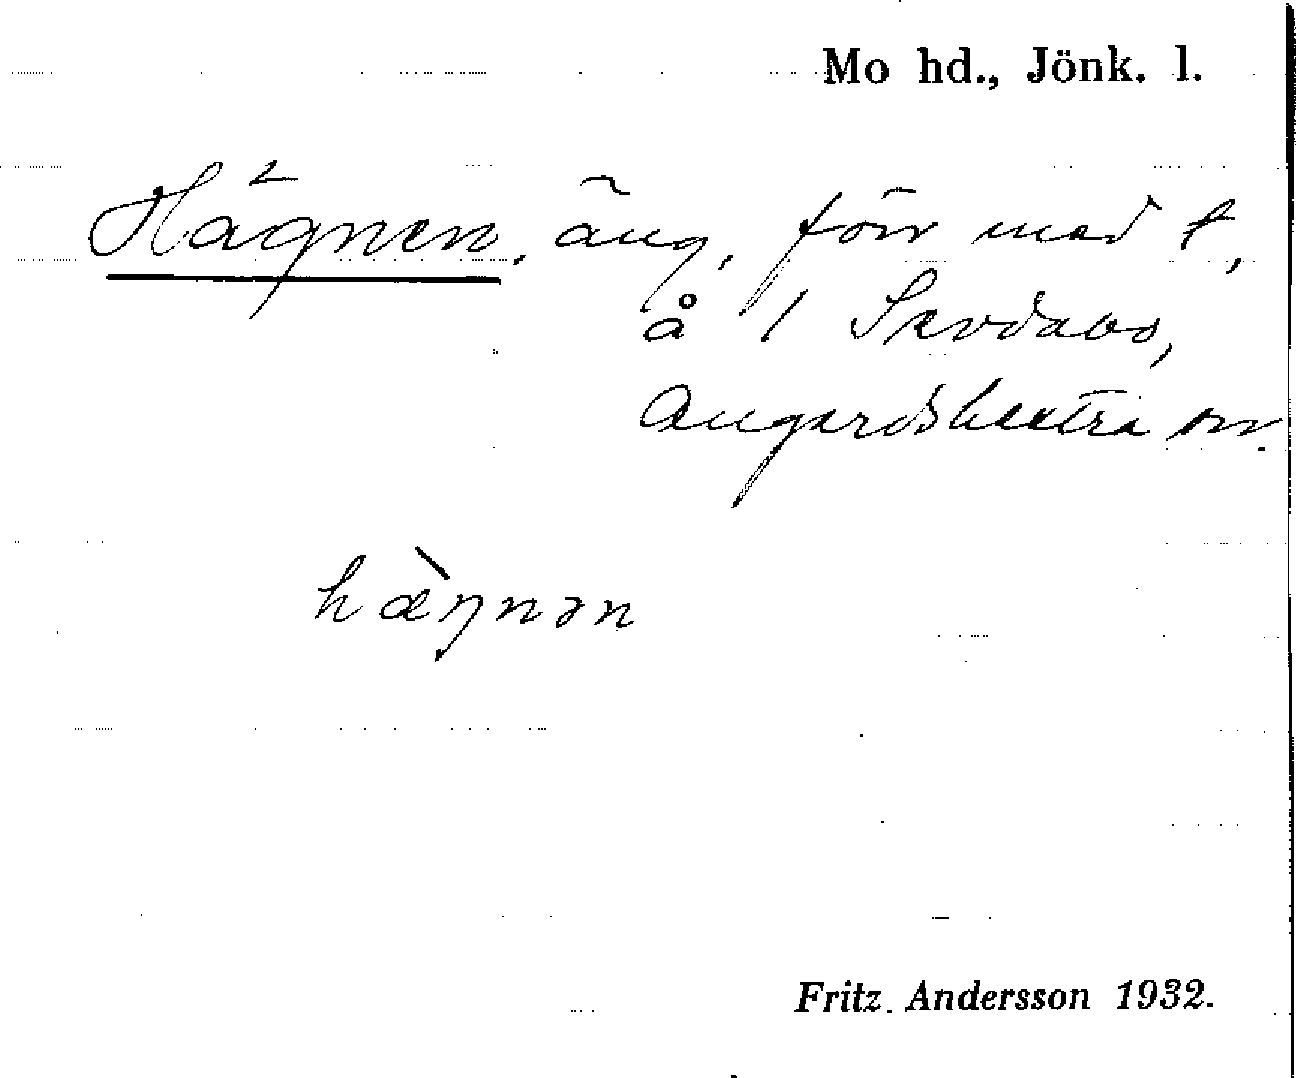 Mo hd., Jönk. l.
Hägnen, äng, förr med t,
å 1
Angerdshestra sn.
hæ̀ŋnən
Fritz Andersson 1932.